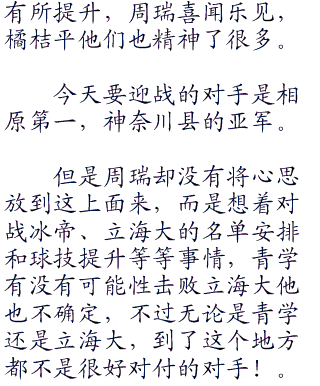 有所提升，周瑞喜闻乐见，
橘桔平他们也精神了很多。
今天要迎战的对手是相
原第一，神奈川县的亚军。
但是周瑞却没有将心思
放到这上面来，而是想着对
战冰帝、立海大的名单安排
和球技提升等等事情，青学
有没有可能性击败立海大他
也不确定，不过无论是青学
还是立海大，到了这个地方
都不是很好对付的对手！。